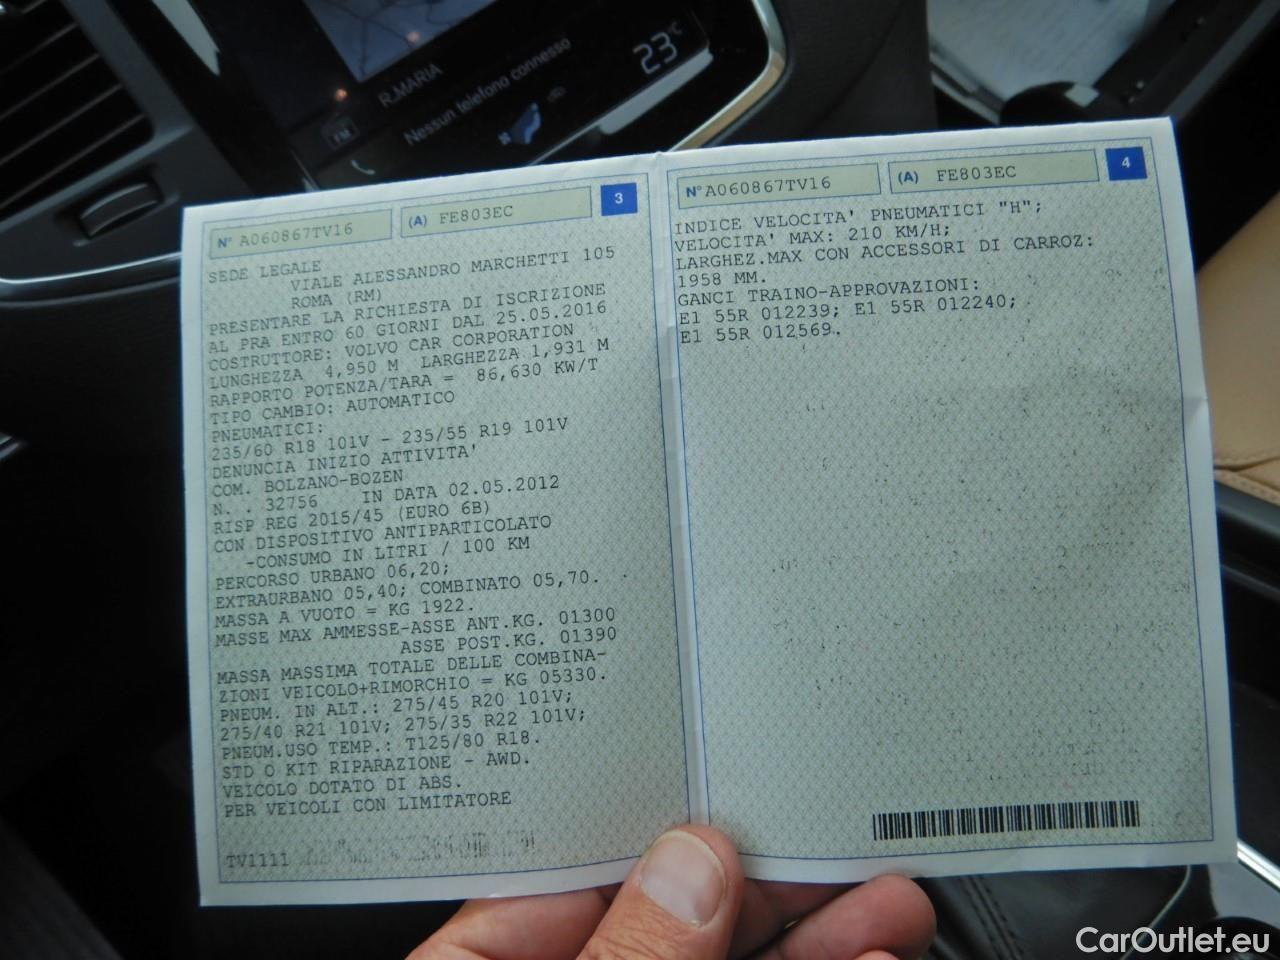 R.MARIA
Nessun telefono connesso
23°C
FM
N° A060867TV16
(A) FE803EC
3
SEDE LEGALE
VIALE ALESSANDRO MARCHETTI 105
ROMA (RM)
PRESENTARE LA RICHIESTA DI ISCRIZIONE
AL PRA ENTRO 60 GIORNI DAL 25.05.2016
COSTRUTTORE: VOLVO CAR CORPORATION
LUNGHEZZA 4,950 M LARGHEZZA 1,931 M
RAPPORTO POTENZA/TARA = 86,630 KW/T
TIPO CAMBIO: AUTOMATICO
PNEUMATICI:
235/60 R18 101V - 235/55 R19 101V
DENUNCIA INIZIO ATTIVITA'
COM. BOLZANO-BOZEN
N. . 32756 IN DATA 02.05.2012
RISP REG 2015/45 (EURO 6B)
CON DISPOSITIVO ANTIPARTICOLATO
-CONSUMO IN LITRI / 100 KM
PERCORSO URBANO 06,20;
EXTRAURBANO 05,40; COMBINATO 05,70.
MASSA A VUOTO = KG 1922.
MASSE MAX AMMESSE-ASSE ANT.KG. 01300
ASSE POST.KG. 01390
MASSA MASSIMA TOTALE DELLE COMBINA-
ZIONI VEICOLO+RIMORCHIO = KG 05330.
PNEUM. IN ALT.: 275/45 R20 101V;
275/40 R21 101V; 275/35 R22 101V;
PNEUM.USO TEMP.: T125/80 R18.
STD O KIT RIPARAZIONE - AWD.
VEICOLO DOTATO DI ABS.
PER VEICOLI CON LIMITATORE
TV1111
N° A060867TV16
(A) FE803EC
4
INDICE VELOCITA' PNEUMATICI "H";
VELOCITA' MAX: 210 KM/H;
LARGHEZ.MAX CON ACCESSORI DI CARROZ:
1958 MM.
GANCI TRAINO-APPROVAZIONI:
E1 55R 012239; E1 55R 012240;
E1 55R 012569.
CarOutlet.eu